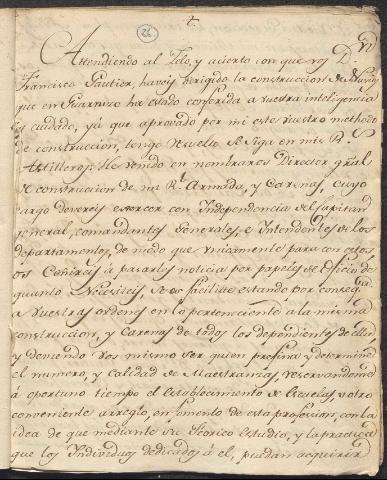 22
Attendiendo al Zelo, y acierto con que vos Dn
Francisco Gautier, haveis dirigido la construccion de Navios
que en Guarnizo ha estado conferida a vuestra inteligencia
y cuidado, yá que aprovado por mi este vuestro methodo
de construccion, tengo resuelto se siga en mis Rs
Astilleros: He venido en nombraros Director gral
de construccion de mi Rl Armada, y Carenas, cuyo
cargo devereis exercer con Independencia del Capitan
general, comandantes Generales, e Intendentes de los
departamentos, de modo que unicamente para con estos
os ceñireis á pasarles noticia por papeles de oficio de
quanto Necesiteis, se os facilite estando por conseqa
a vuestras ordenes en lo perteneciente a la misma
construccion, y Carenas de todos los dependientes de ellas,
y deviendo vos mismo ser quien prefina y determine
el numero, y calidad de Maestranzas, reservandome
á oportuno tiempo el establecimiento de Escuelas, y otro
conveniente arreglo, en fomento de esta profesion, con la
idea de que mediante su Teorico estudio, y la practica
que los Individuos dedicados á el, puedan acquirir